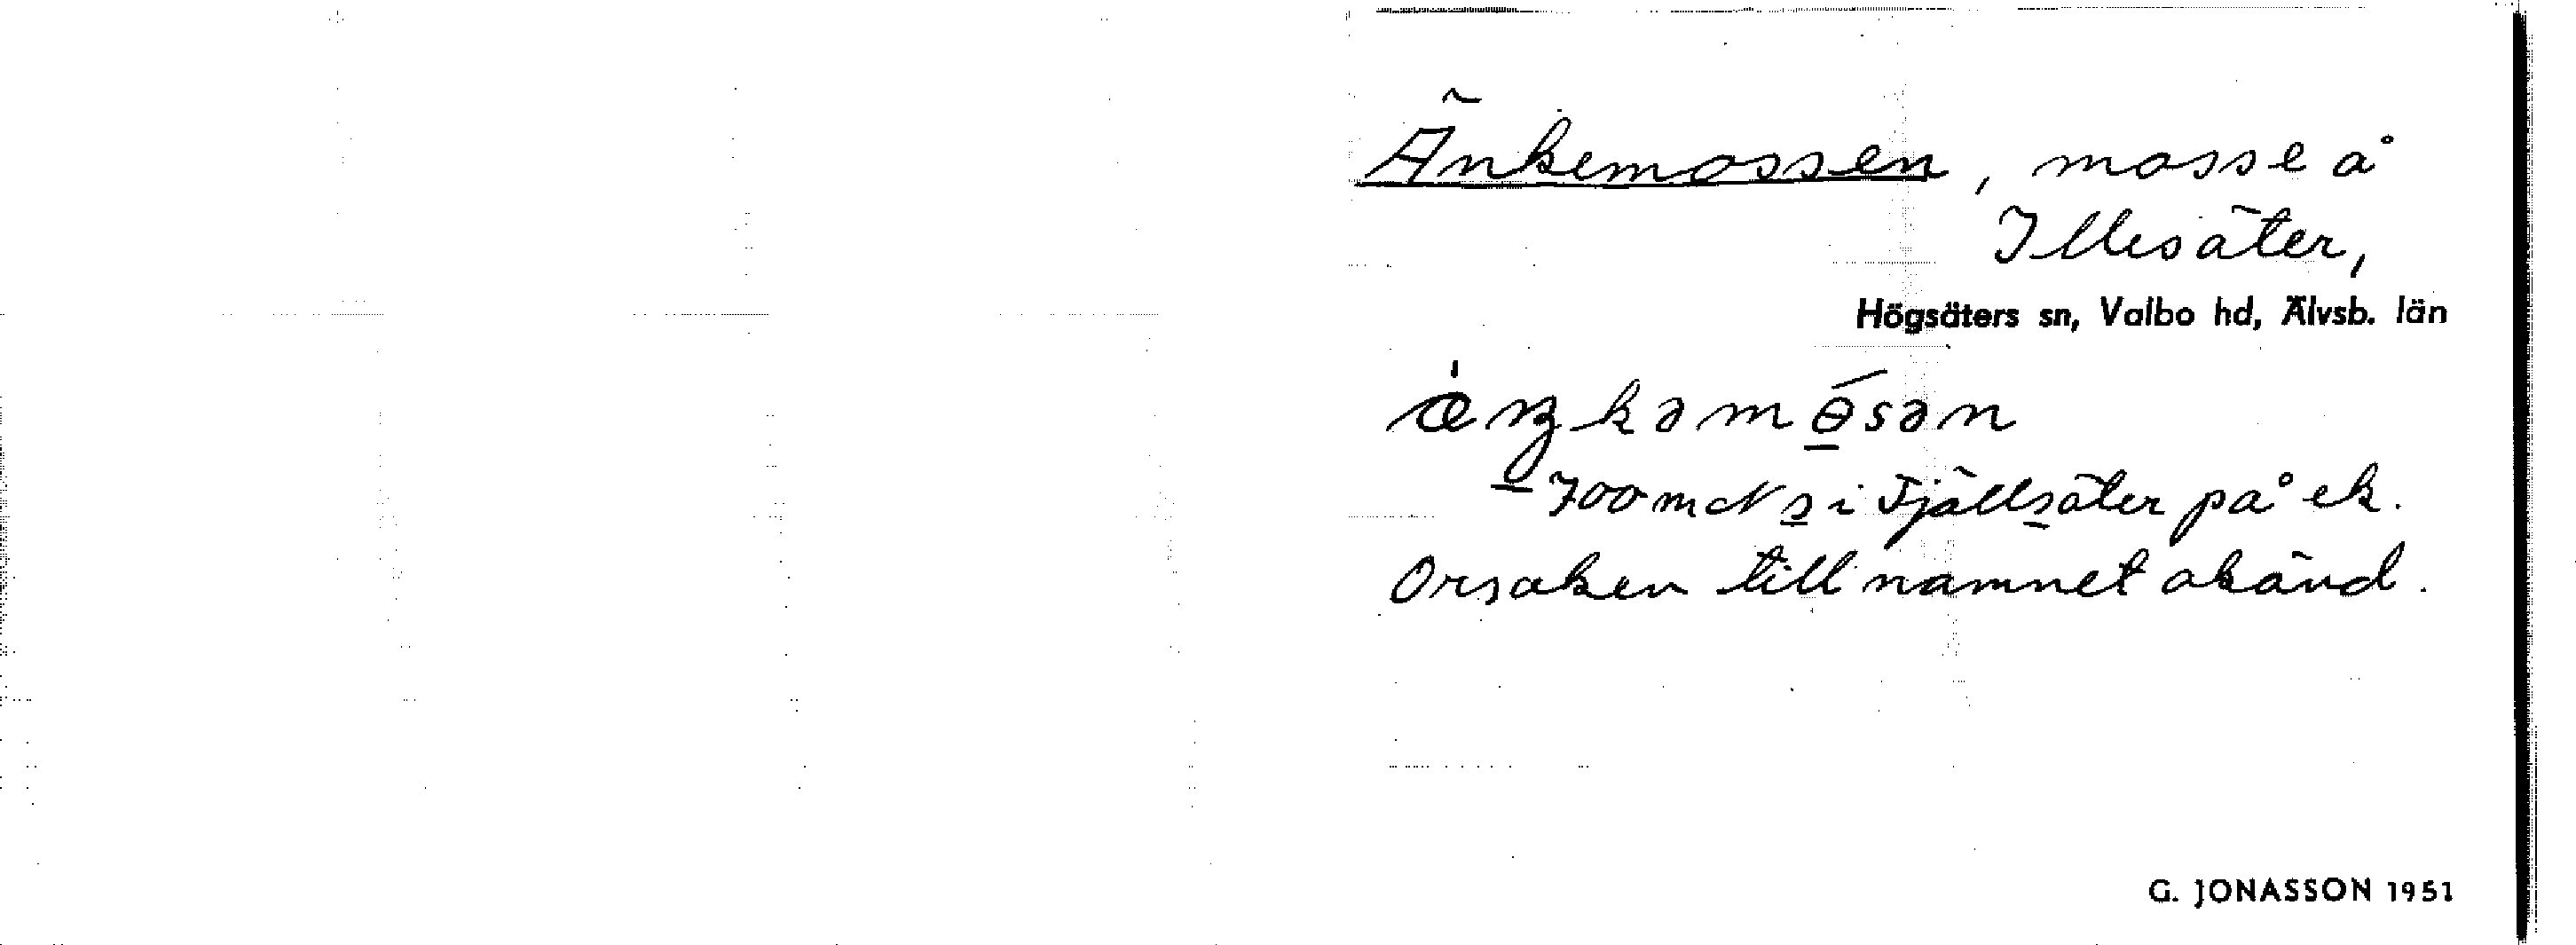 Änkemossen, mosse å
Illesäter,
Högsäters sn, Valbo hd, Älvsb. län
700 m N s i Fjällsäter på ek.
Orsaken till namnet okänd.
G. JONASSON 1951